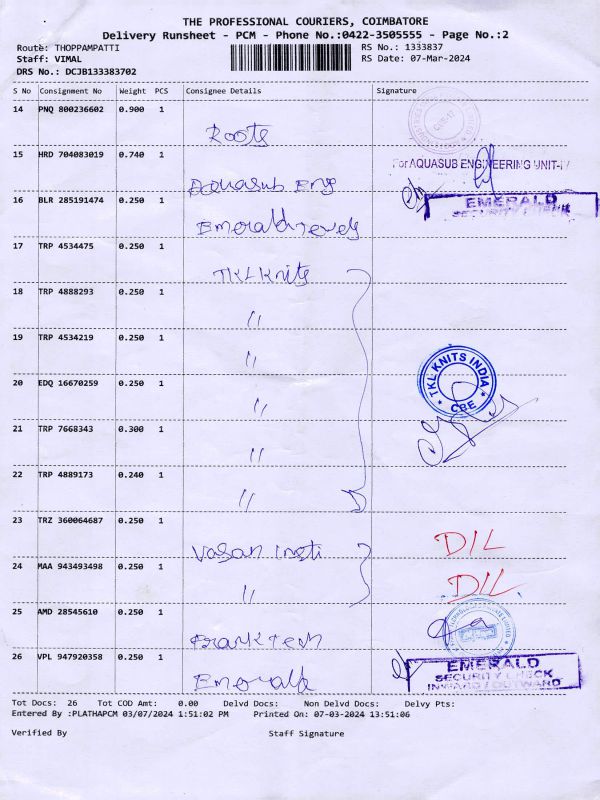 THE PROFESSIONAL COURIERS, COIMBATORE
Delivery Runsheet - PCM - Phone No.:0422-3505555 - Page No.:2
Route: THOPPAMPATTI RS No.: 1333837
Staff: VIMAL RS Date: 07-Mar-2024
DRS No.: DCJB133383702
S No Consignment No Weight PCS Consignee Details Signature
14 PNQ 800236602 0.900 1
Roots
15 HRD 704083019 0.740 1
For AQUASUB ENGINEERING UNIT-IV
Aquasub Eng
16 BLR 285191474 0.250 1
EMERALD
SECURITY CHECK
Emerald Jewels
17 TRP 4534475 0.250 1
TKL Knits
18 TRP 4888293 0.250 1
"
19 TRP 4534219 0.250 1
"
TKL KNITS INDIA
CBE
20 EDQ 16670259 0.250 1
"
21 TRP 7668343 0.300 1
"
22 TRP 4889173 0.240 1
"
23 TRZ 360064687 0.250 1
Vasan Insti DIL
24 MAA 943493498 0.250 1
" DIL
25 AMD 28545610 0.250 1
Frank Tech
26 VPL 947920358 0.250 1
EMERALD
SECURITY CHECK
INWARD / OUTWARD
Emerald
Tot Docs: 26 Tot COD Amt: 0.00 Delvd Docs: Non Delvd Docs: Delvy Pts:
Entered By :PLATHAPCM 03/07/2024 1:51:02 PM Printed On: 07-03-2024 13:51:06
Verified By Staff Signature